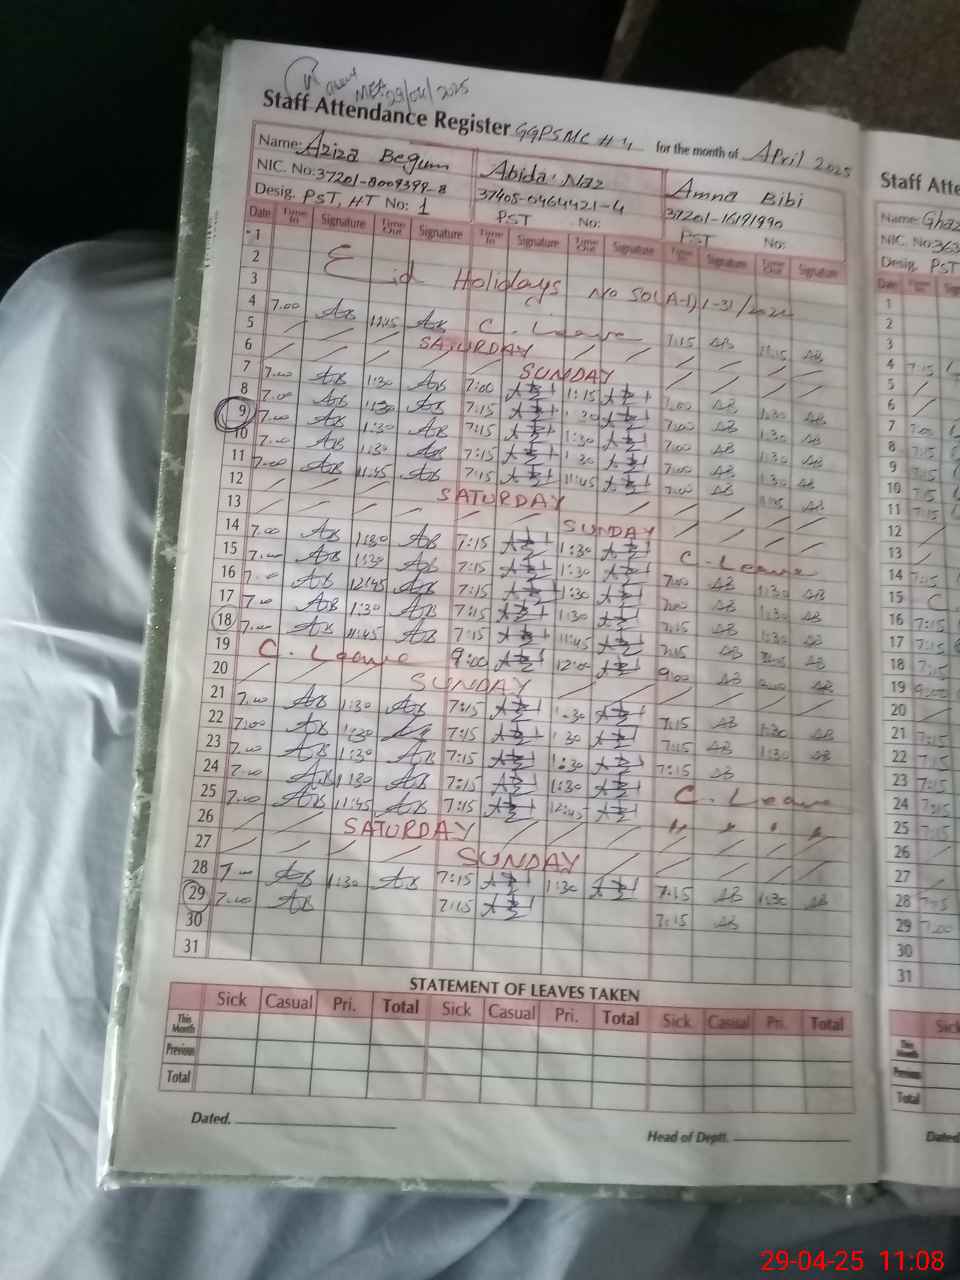 29/04/2025
Staff Attendance Register GGPSMC # 4 for the month of April 2025
Name: Aziza Begum Abida Naz Amna Bibi
NIC. No: 37201-8009399-8 37405-0464421-4 37201-1619990
Desig. PST, HT No: 1 PST No: PST No:
Date Time In Signature Time Out Signature Time In Signature Time Out Signature Time In Signature Time Out Signature
1
2 Eid Holidays
3
4 7.00 AB 11:45 AB C. Leave 7:15 AB 11:15 AB
5 SATURDAY
6 SUNDAY
7 7.00 AB 1:30 AB 7:00 1:15 7:00 AB 1:30 AB
8 7.00 AB 1:30 AB 7:15 1:30 7:00 AB 1:30 AB
9 7.00 AB 1:30 AB 7:15 1:30 7:00 AB 1:30 AB
10 7.00 AB 1:30 AB 7:15 1:30 7:00 AB 1:30 AB
11 7.00 AB 11:45 AB 7:15 11:45 7:00 AB 11:45 AB
12 SATURDAY
13 SUNDAY
14 7.00 AB 1:30 AB 7:15 1:30 C. Leave
15 7.00 AB 1:30 AB 7:15 1:30 7:00 AB 1:30 AB
16 7.00 AB 12:45 AB 7:15 1:30 7:00 AB 1:30 AB
17 7.00 AB 1:30 AB 7:15 1:30 7:15 AB 1:30 AB
18 7.00 AB 11:45 AB 7:15 11:45 7:15 AB AB
19 C. Leave 9:00 12:00 9:00 AB AB
20 SUNDAY
21 7.00 AB 1:30 AB 7:15 1:30 7:15 AB 1:30 AB
22 7:00 AB 1:30 AB 7:15 1:30 7:15 AB 1:30 AB
23 7.00 AB 1:30 AB 7:15 1:30 7:15 AB
24 7.00 AB 1:30 AB 7:15 1:30 C. Leave
25 7.00 AB 11:45 AB 7:15 12:45 " " " "
26 SATURDAY
27 SUNDAY
28 7.00 AB 1:30 AB 7:15 1:30 7:15 AB 1:30 AB
29 7.00 AB 7:15 7:15 AB
30
31
STATEMENT OF LEAVES TAKEN
Sick Casual Pri. Total Sick Casual Pri. Total Sick Casual Pri. Total
This Month
Previous
Total
Dated.
Head of Deptt.
Staff Atte
Name: Ghaz
NIC. No: 363
Desig. PST
Date
1
2
3
4 7:15
5
6
7 7:00
8 7:15
9 7:15
10 7:15
11 7:15
12
13
14 7:15
15 C
16 7:15
17 7:15
18 7:15
19 9:00
20
21 7:15
22 7:15
23 7:15
24 7:15
25 7:15
26
27
28 7:15
29 7:00
30
31
Sick
This Month
Previous
Total
Dated
29-04-25 11:08